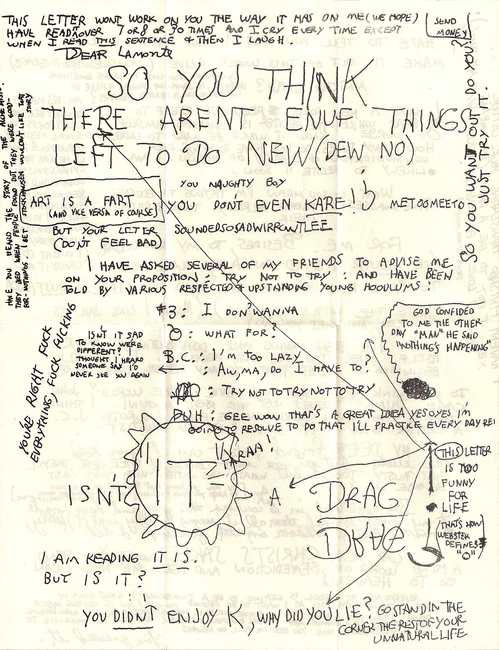 THIS LETTER WONT WORK ON YOU THE WAY IT HAS ON ME (WE HOPE)
HAVE READ IT OVER 7 OR 8 OR 90 TIMES AND I CRY EVERY TIME EXCEPT
WHEN I READ THIS SENTENCE & THEN I LAUGH.
SEND
MONEY
DEAR LAMONTE
SO YOU THINK
THERE ARENT ENUF THINGS
LEFT TO DO NEW (DEW NO)
SO YOU WANT OUT DO YOU?
JUST TRY IT.
HAVE YOU HEARD THE STORY OF THE
THEY DIED WHEN PEOPLE FOUND OUT THEY WERE GOOD
FOR NOTHING. I BET STOCKHAUSEN WOULDN'T LIKE THAT
STORY
ART IS A FART
(AND VICE VERSA OF COURSE)
YOU NAUGHTY BOY
YOU DON'T EVEN KARE!
ME TOO ME TO
BUT YOUR LETTER
(DON'T FEEL BAD)
SOUNDEDSOSADWIRRANTLEE
I HAVE ASKED SEVERAL OF MY FRIENDS TO ADVISE ME
ON YOUR PROPOSITION: TRY NOT TO TRY: AND HAVE BEEN
TOLD BY VARIOUS RESPECTED & UPSTANDING YOUNG HOODLUMS:
#3: I DON'T WANNA
O: WHAT FOR?
B.C.: I'M TOO LAZY
: AW, MA, DO I HAVE TO?
: TRY NOT TO TRY NOT TO TRY
DUH: GEE WOW THAT'S A GREAT IDEA YESOYES I'M
GOING TO RESOLVE TO DO THAT I'LL PRACTICE EVERY DAY
ISN'T IT SAD
TO KNOW WE'RE
DIFFERENT? I
THOUGHT I HEARD
SOMEONE SAY I'D
NEVER SEE YOU AGAIN
YOU'RE RIGHT FUCK
EVERYTHING, FUCK FUCKING
GOD CONFIDED
TO ME THE OTHER
DAY "MAN" HE SAID
"NOTHING'S HAPPENING"
TARAA!
ISN'T
"IT"
A
DRAG
DRAG
THIS LETTER
IS TOO
FUNNY
FOR
LIFE
(THAT'S HOW
WEBSTER
DEFINES
"O")
I AM READING IT IS.
BUT IS IT?
YOU DIDNT ENJOY K, WHY DID YOU LIE? GO STAND IN THE
CORNER THE REST OF YOUR
UNNATURAL LIFE